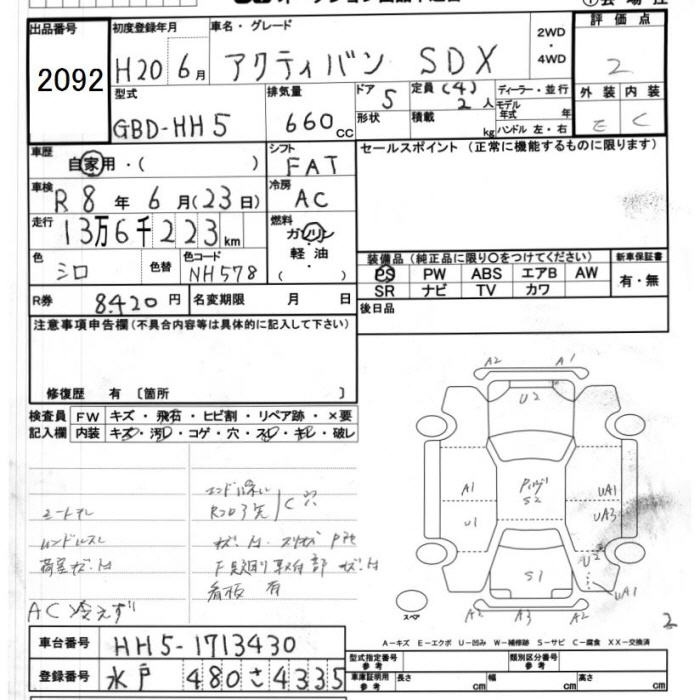 出品番号 初度登録年月 車名・グレード 2WD・4WD 評価点
2092 H20 6月 アクティバン SDX 2
型式 排気量 ドア 5 定員 (4) 2人 ディーラー・並行 外装 内装
GBD-HH5 660cc 形状 積載 kg モデル年式 年 ハンドル 左・右 E C
車歴 自家用・( ) シフト FAT セールスポイント (正常に機能するものに限ります)
車検 R8年6月(23日) 冷房 AC
走行 13万6千223km 燃料 ガソリン 軽油 ( )
色 シロ 色替 色コード NH578
装備品 (純正品に限り○をつけてください) 新車保証書
PS PW ABS エアB AW 有・無
SR ナビ TV カワ
R券 8420円 名変期限 月 日 後日品
注意事項申告欄 (不具合内容等は具体的に記入して下さい)
修復歴 有 〔箇所 〕
検査員 FW キズ・飛石・ヒビ割・リペア跡・×要
記入欄 内装 キズ・汚レ・コゲ・穴・スレ・キレ・破レ
A2 A1
U2
A1 Pハゲ S2 UA1
U1 UA3
U2
S1 UA1
スペア A2 A3 A2
シートテレ
ハンドルスレ
荷室キズ・H
下見廻り 取付部 キズ・H
看板 有
AC 冷えず
2
A-キズ E-エクボ U-凹み W-補修跡 S-サビ C-腐食 XX-交換済
車台番号 HH5-1713430
登録番号 水戸 480 さ 4335
型式指定番号 参考 類別区分番号 参考
車庫証明用 参考 長さ cm 幅 cm 高さ cm